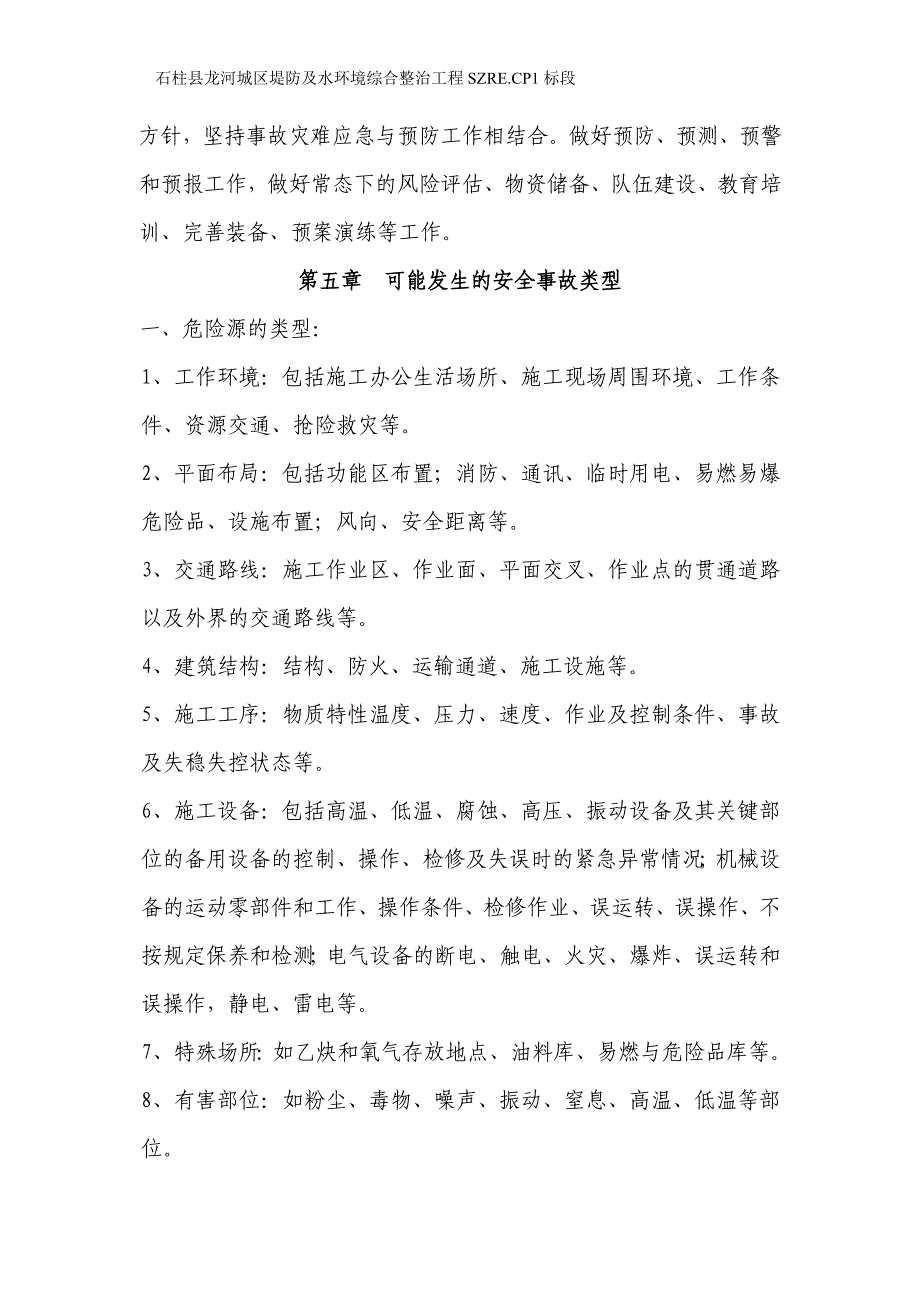 石柱县龙河城区堤防及水环境综合整治工程 SZRE.CP1 标段
方针，坚持事故灾难应急与预防工作相结合。做好预防、预测、预警
和预报工作，做好常态下的风险评估、物资储备、队伍建设、教育培
训、完善装备、预案演练等工作。
第五章　可能发生的安全事故类型
一、危险源的类型：
1、工作环境：包括施工办公生活场所、施工现场周围环境、工作条
件、资源交通、抢险救灾等。
2、平面布局：包括功能区布置；消防、通讯、临时用电、易燃易爆
危险品、设施布置；风向、安全距离等。
3、交通路线：施工作业区、作业面、平面交叉、作业点的贯通道路
以及外界的交通路线等。
4、建筑结构：结构、防火、运输通道、施工设施等。
5、施工工序：物质特性温度、压力、速度、作业及控制条件、事故
及失稳失控状态等。
6、施工设备：包括高温、低温、腐蚀、高压、振动设备及其关键部
位的备用设备的控制、操作、检修及失误时的紧急异常情况；机械设
备的运动零部件和工作、操作条件、检修作业、误运转、误操作、不
按规定保养和检测；电气设备的断电、触电、火灾、爆炸、误运转和
误操作，静电、雷电等。
7、特殊场所：如乙炔和氧气存放地点、油料库、易燃与危险品库等。
8、有害部位：如粉尘、毒物、噪声、振动、窒息、高温、低温等部
位。